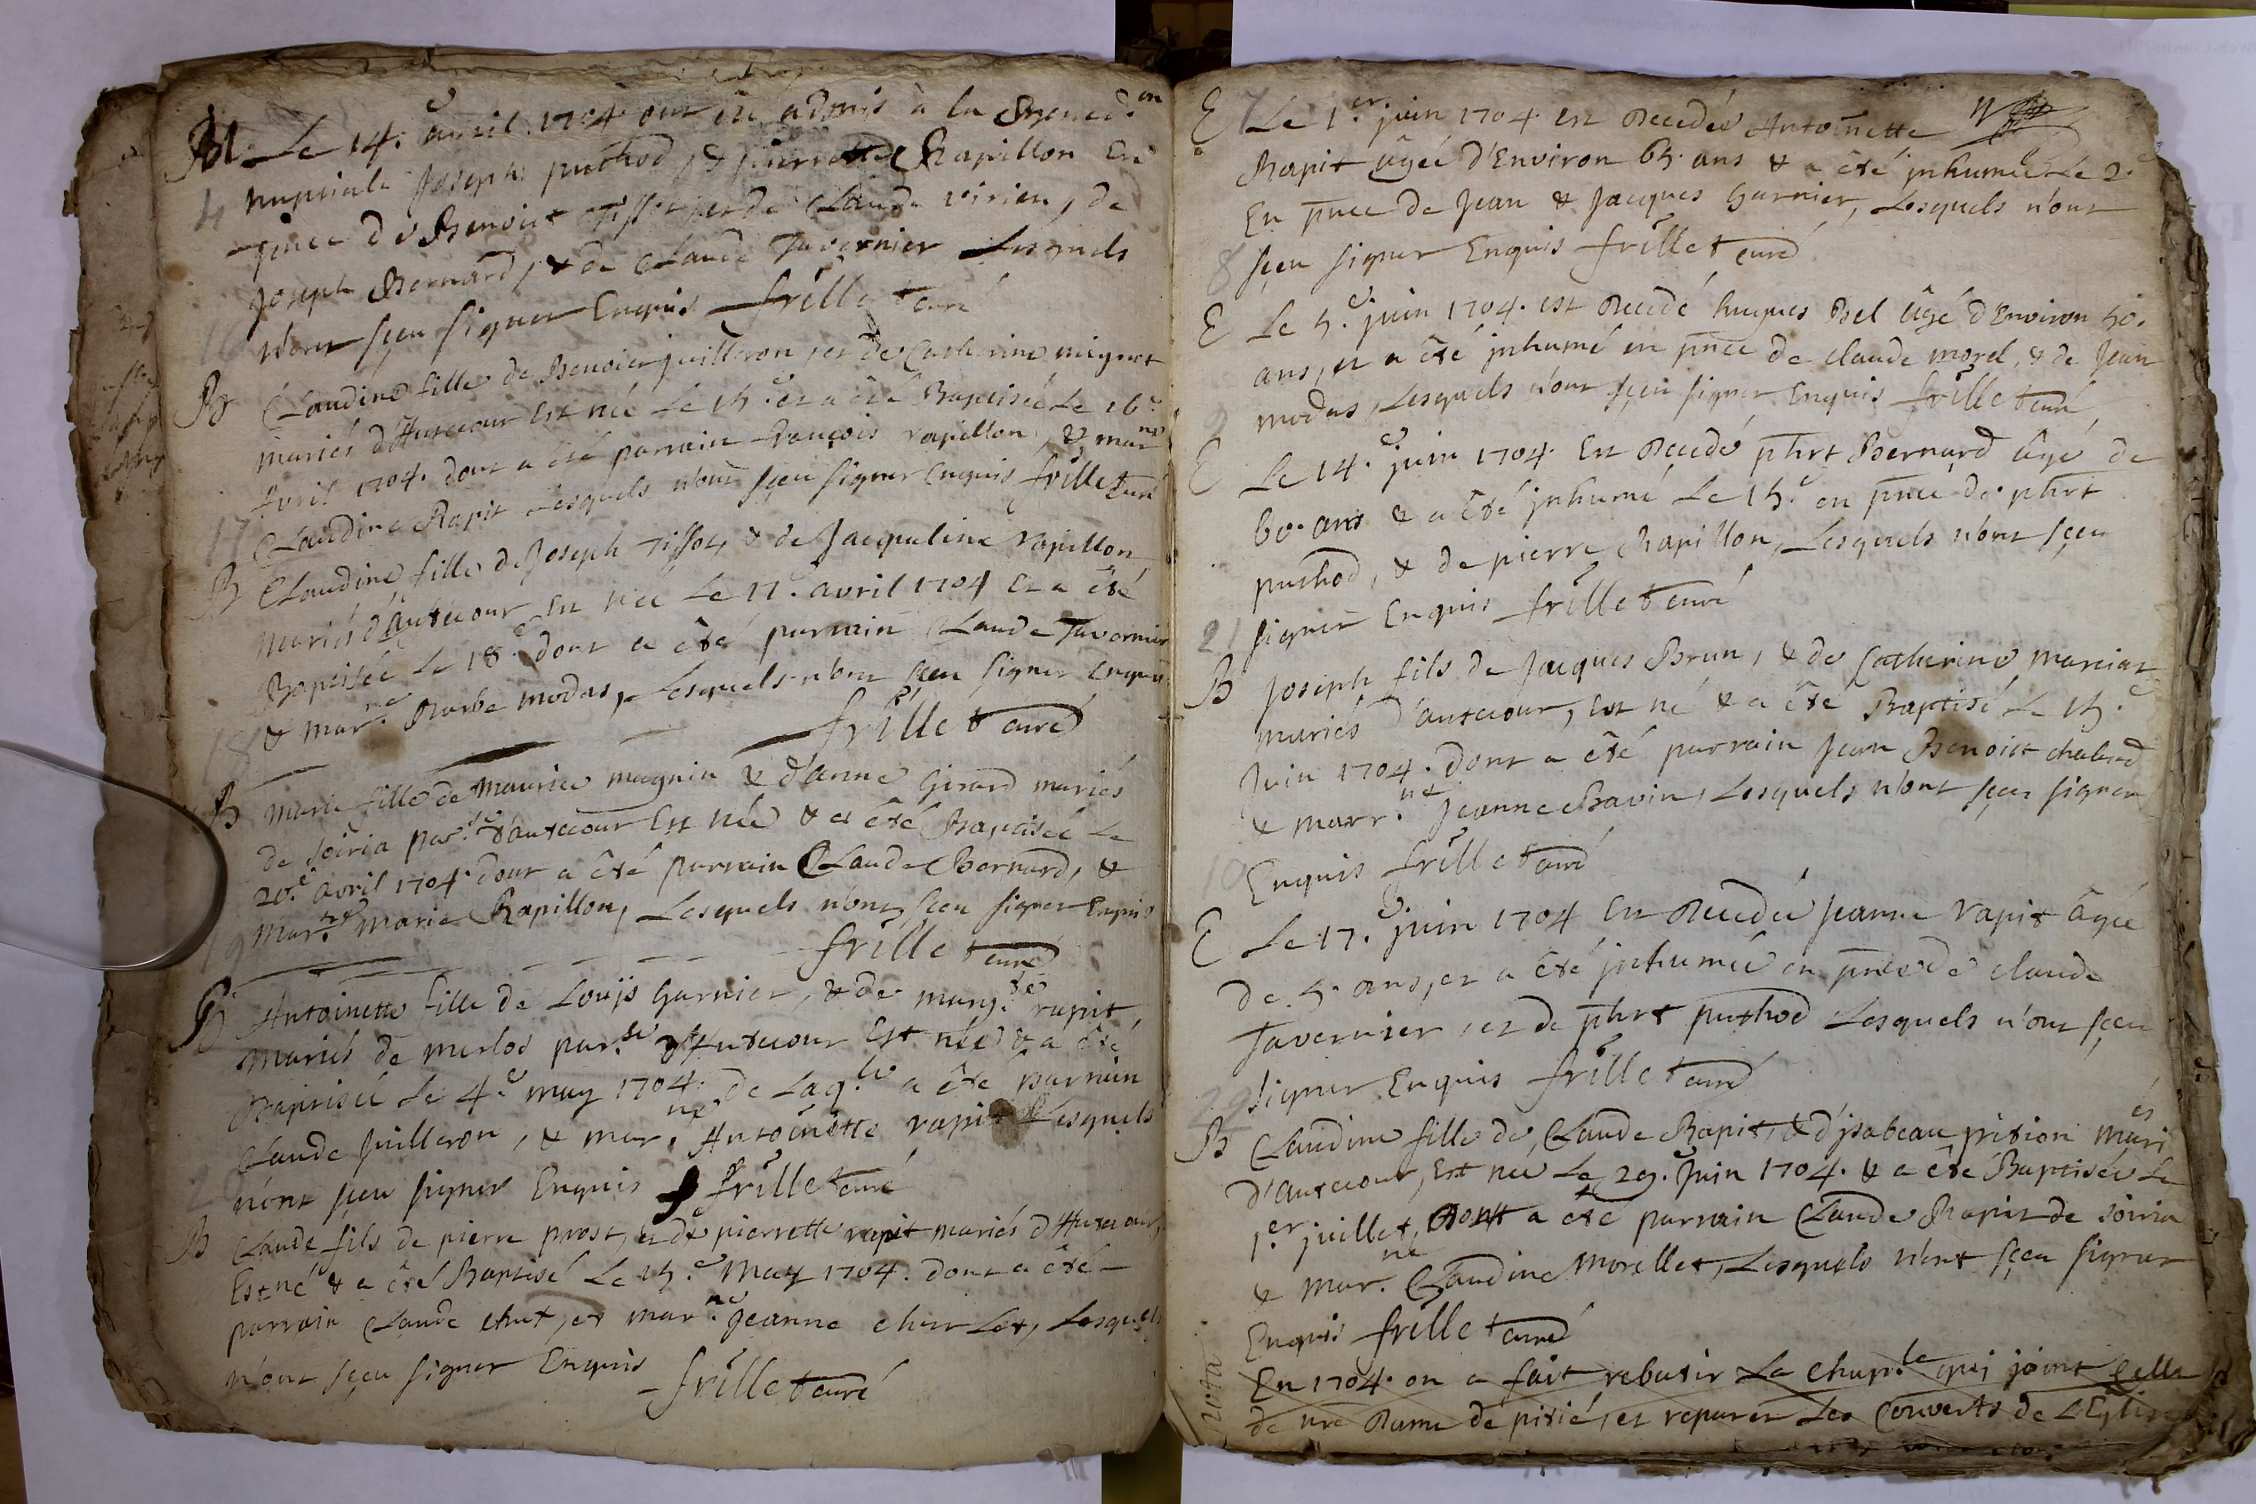 M Le 14.e avril 1704 ont été admis à la Bened.on
4 nuptiale Joseph puthod, & pierrette Rapillon En
pn̄ce de Benoist Tissot, et de Claude virieu, de
Joseph Bernard, & de Claude Tavernier Lesquels
n'ont sçeu signer Enquis frillet curé
B Claudine fille de Benoist juilleron, et de Catherine mignot
mariés d'Autecour Est née Le 15.e et a été Baptisée Le 16.e
Avril 1704. dont a été parrain françois rapillon, & mar.ne
17 Claudine Rapit Lesquels n'ont sçeu signer Enquis frillet curé
B Claudine fille de Joseph Tissot, & de Jacqueline rapillon
mariés d'autecour Est née Le 17.e avril 1704 Et a été
Baptisée Le 18.e dont a été parrain Claude Tavernier
& mar.ne Barbe modas, Lesquels n'ont sçeu signer Enquis
18 frillet curé
B Marie fille de Maurice magnin & d'anne Girard mariés
de soiria par.se d'autecour Est née & a été Baptisée Le
20.e avril 1704 dont a été parrain Claude Bernard, &
19 Mar.ne Marie Rapillon, Lesquels n'ont sçeu signer Enquis
frillet curé
B Antoinette fille de Louis Garnier, & de marg.te rapit
Mariés de merlos par.se d'Autecour Est née & a été
Baptisée Le 4.e may 1704. de Laq.le a été parrain
Claude juilleron, & mar.ne Antoinette rapit Lesquels
n'ont sçeu signer Enquis frillet curé
B Claude fils de pierre prost, et de pierrette rapit mariés d'Autecour,
Est né & a été Baptisé Le 15.e May 1704. dont a été
parrain Claude chut, et mar.ne Jeanne cherlet, Lesquels
n'ont sçeu signer Enquis frillet curé
E 7 Le 1.er juin 1704. Est Decedée Antoinette
Rapit âgée d'Environ 65. ans & a été inhumée Le 2.e
En pn̄ce de Jean & Jacques Garnier, Lesquels n'ont
8 sçeu signer Enquis frillet curé
E Le 5.e juin 1704. est Decedé hugues Bel âgé d'Environ 50.
ans, et a été inhumé en pn̄ce de claude morel, & de Jean
9 modas, Lesquels n'ont sçeu signer Enquis frillet curé
E Le 14.e juin 1704. Est Decedé phrt Bernard âgé de
60. ans & a été inhumé Le 15.e en pn̄ce de phrt
puthod, & de pierre Rapillon, Lesquels n'ont sçeu
21 signer Enquis frillet curé
B Joseph fils de Jacques Brun, & de Catherine marciat
mariés d'autecour, Est né & a été Baptisé Le 15.e
Juin 1704. dont a été parrain Jean Benoist chaland
& marr.ne Jeanne Bavin, Lesquels n'ont sçeu signer
10 Enquis frillet curé
E Le 17.e juin 1704 Est Decedée Jeanne rapit âgée
de 5. ans, et a été inhumée en pn̄ce de claude
Tavernier, et de phrt puthod Lesquels n'ont sçeu
22 signer Enquis frillet curé
B Claudine fille de Claude Rapit, & d'ysabeau pition mariés
d'autecour, Est née Le 29. Juin 1704. & a été Baptisée Le
1.er juillet, Dont a été parrain Claude Rapit de soiria
& mar.ne Claudine Morellet, Lesquels n'ont sçeu signer
Enquis frillet curé
nota En 1704. on a fait rebatir La Chap.le qui joint Celle
de nre Dame de pitié, et reparer Les Couverts de L'Eglise